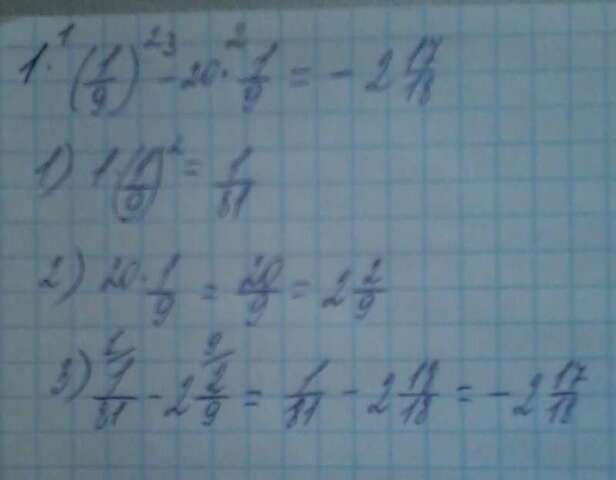 1 · (1/9)² - 20 · 1/9 = - 2 17/18
1) 1 · (1/9)² = 1/81
2) 20 · 1/9 = 20/9 = 2 2/9
3) 1/81 - 2 2/9 = 1/81 - 2 18/18 = - 2 17/18